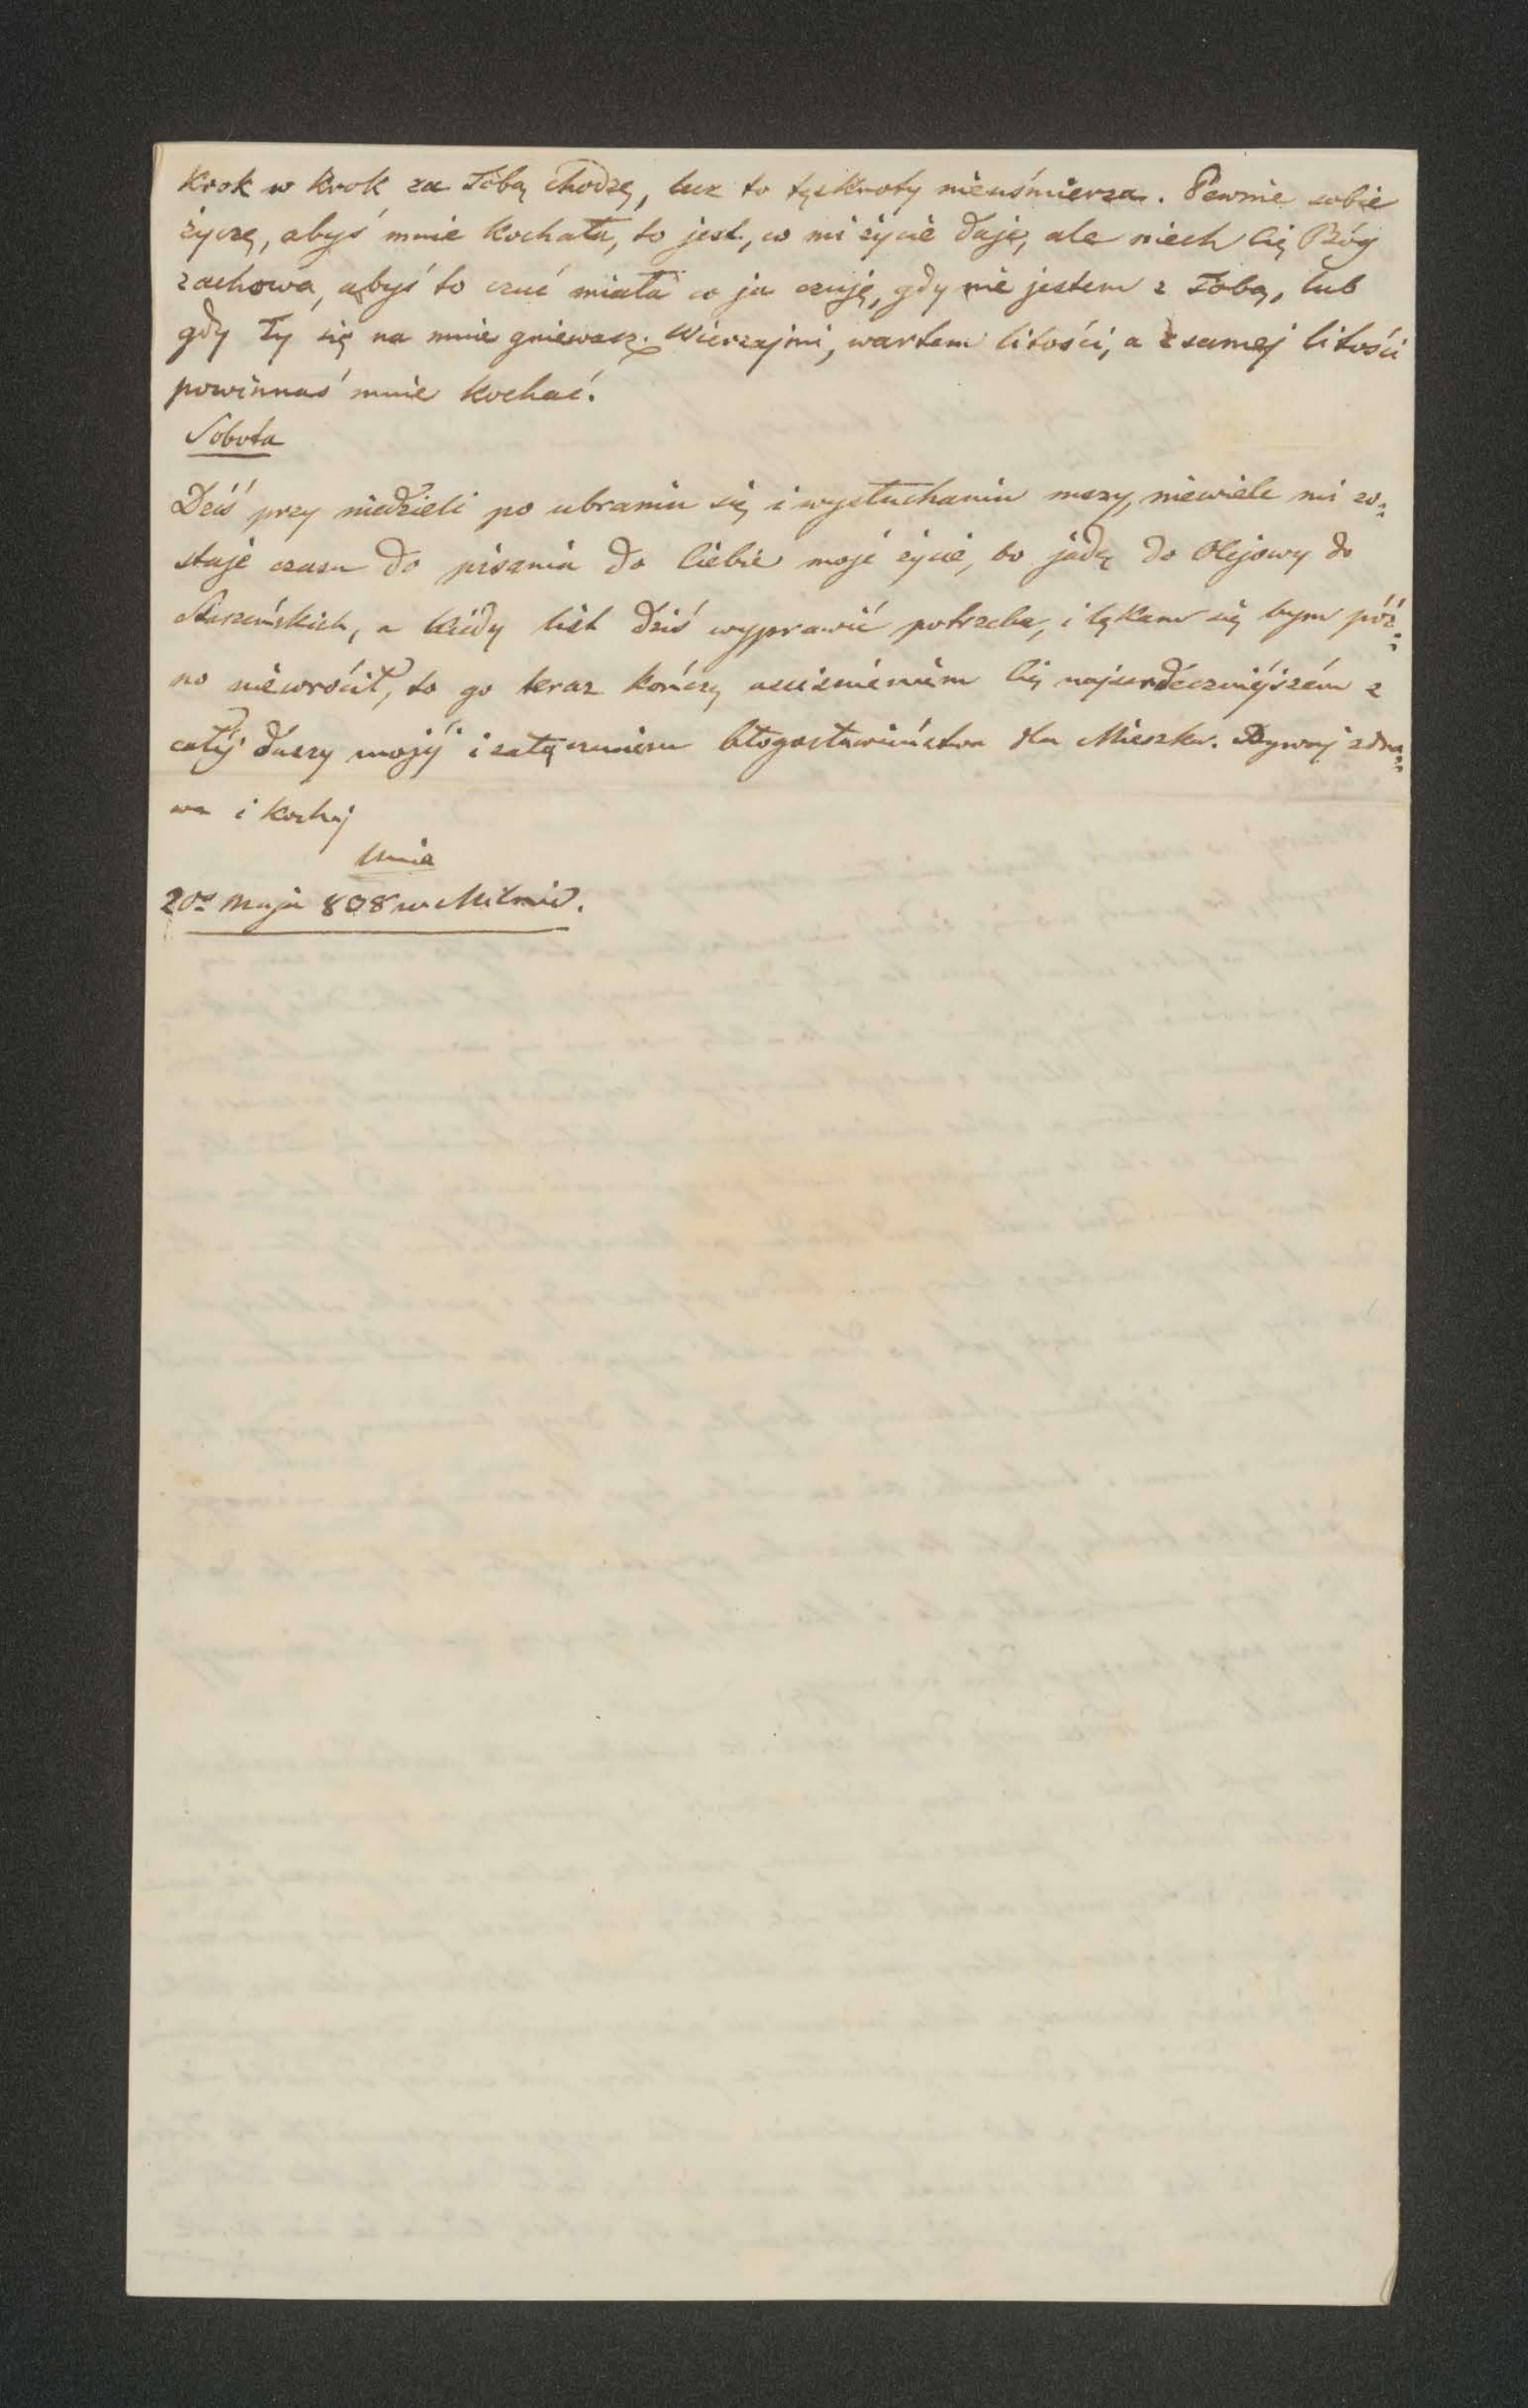 Krok w krok za Tobą chodzę, lecz to tęsknoty nieuśmierza. Pewnie sobie
życzę, abyś mnie kochała, to jest, co mi życie daje, ale niech Cię Bóg
zachowa, abyś to czuć miała co ja czuję, gdy nie jestem z Tobą, lub
gdy Ty się na mnie gniewasz. Wierzaj mi, wartem litości, a z samej litości
powinnaś mnie kochać.
Sobota
Dziś przy niedzieli po ubraniu się i wysłuchaniu mszy, niewiele mi zo=
staje czasu do pisania do Ciebie moje życie, bo jadę do Olejowy do
Starzeńskich, a kiedy list dziś wyprawić potrzeba, i lękam się bym póź=
no niewrócił, to go teraz kończę uściśnieniem Cię najserdeczniejszém z
całej duszy mojéj i załączeniem błogosławieństwa dla Mieszka. Bywaj zdro=
wa i kochaj
Unie
20go Maja 808 w Milnie.